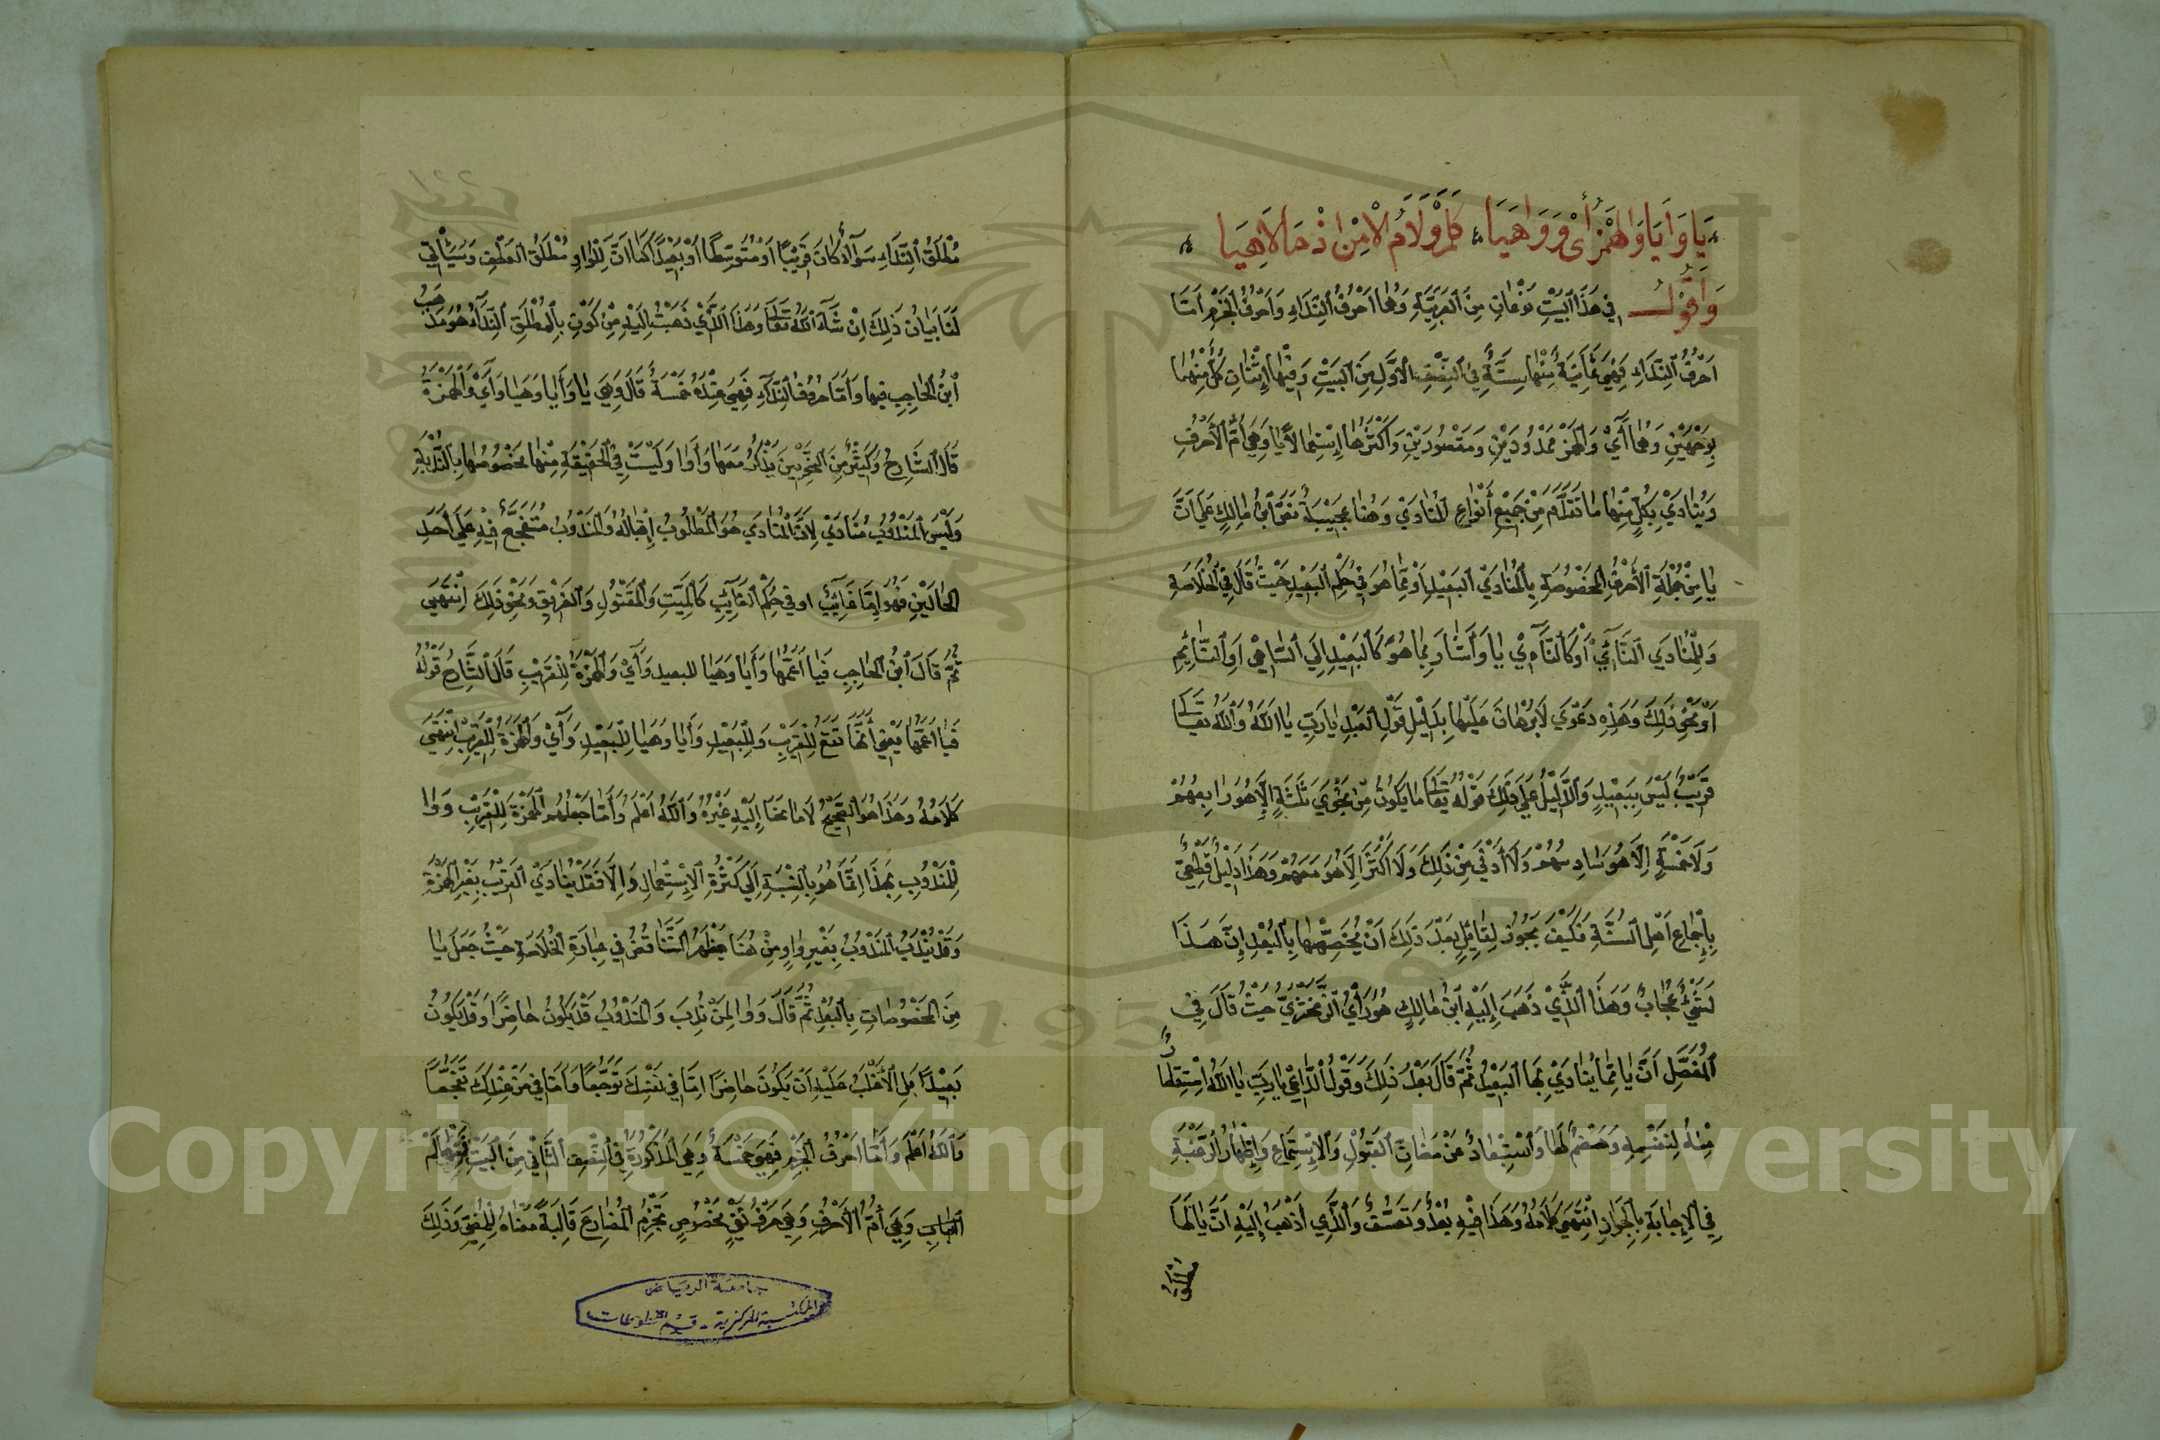 يَا وَأَيَا وَالْهَمْزُ أَيْ وَوَا هَيَا كَلَمْ وَلَامُ الْأَمْرِ إِذْ مَا لَا هِيَا
وَأَقُولُ في هَذَا البَيْتِ نَوْعَانِ مِنَ العَرَبِيَّةِ وَهُمَا أَحْرُفُ النِّدَاءِ وَأَحْرُفُ الجَزْمِ أَمَّا
أَحْرُفُ النِّدَاءِ فَهِيَ ثَمَانِيَةٌ مِنْهَا سِتَّةٌ فِي النِّصْفِ الأَوَّلِ مِنَ البَيْتِ وَفِيْهَا إِثْنَانِ كُلٌّ مِنْهُمَا
بِوَجْهَيْنِ وَهُمَا أَيْ وَالهَمْزُ مَمْدُودَيْنِ وَمَقْصُورَيْنِ وَأَكْثَرُهَا إِسْتِعْمَالًا يَا وَهِيَ أُمُّ الأَحْرُفِ
وَيُنَادَيْ بِكُلٍّ مِنْهَا مَا تَقَدَّمَ مِنْ جَمِيْعِ أَنْوَاعِ المُنَادَيْ وَهُنَا عَجِيْبَةٌ نَصَّ ابْنُ مَالِكٍ عَلَى أَنَّ
يَا مِنْ جُمْلَةِ الأَحْرُفِ المَخْصُوصَةِ بِالمُنَادَيْ البَعِيْدِ أَوْ بِمَا هُوَ فِيْ حُكْمِ البَعِيْدِ حَيْثُ قَالَ فِي الخُلَاصَةِ
وَلِلْمُنَادَي النَّائِيْ أَوْ كَالنَّاءِ يْ يَا وَأَشَارَ بِمَا هُوَ كَالبَعِيْدِ إِلَي السَّاهِيْ أَوِ النَّائِمِ
أَوْ نَحْوِ ذَلِكَ وَهَذِهِ دَعْوَي لَا بُرْهَانَ عَلَيْهَا بِدَلِيْلِ قَوْلِ العَبْدِ يَا رَبِّ يَا اللهُ وَاللهُ تَعَالَى
قَرِيْبٌ لَيْسَ بِبَعِيْدٍ وَالدَّلِيْلُ عَلَى ذَلِكَ قَوْلُهُ تَعَالَى مَا يَكُونُ مِنْ نَجْوَي ثَلَثَةٍ إِلَّا هُوَ رَابِعُهُمْ
وَلَا خَمْسَةٍ إِلَّا هُوَ سَادِسُهُمْ وَلَا أَدْنَي مِنْ ذَلِكَ وَلَا أَكْثَرَ إِلَّا هُوَ مَعَهُمْ وَهَذَا دَلِيْلٌ قَطْعِيٌّ
بِإِجْمَاعِ أَهْلِ السُّنَّةِ فَكَيْفَ يَجُوزُ لِقَائِلٍ بَعْدَ ذَلِكَ أَنْ يُخَصِّصَهَا بِالبُعْدِ إِنَّ هَذَا
لَشَيْءٌ عُجَابٌ وَهَذَا الَّذِيْ ذَهَبَ إِلَيْهِ ابْنُ مَالِكٍ هُوَ رَأْيُ الزَّمَخْشَرِيِّ حَيْثُ قَالَ فِي
المُفَصَّلِ أَنَّ يَا مِمَّا يُنَادَيْ بِهَا البَعِيْدُ ثُمَّ قَالَ بَعْدَ ذَلِكَ وَقَوْلُ الدَّاعِيْ يَا رَبِّ يَا اللهُ اسْتِقْصَارٌ
مِنْهُ لِنَفْسِهِ وَهَضْمٌ لَهَا وَاسْتِبْعَادٌ عَنْ مَظَانِّ القَبُولِ وَالِاسْتِمَاعِ وَإِظْهَارُ الرَّغْبَةِ
فِي الإِجَابَةِ بِالجُوَارِ انْتَهَى كَلَامُهُ وَهَذَا فِيْهِ بُعْدٌ وَتَعَسُّفٌ وَالَّذِي أَذْهَبُ إِلَيْهِ أَنَّ يَا لَهَا
مطلق
١٢٢
مُطْلَقُ النِّدَاءِ سَوَآءٌ كَانَ قَرِيْبًا أَوْ مُتَوَسِّطًا أَوْ بَعِيْدًا كَمَا أَنَّ لِلْوَاوِ مُطْلَقُ العَطْفِ وَسَيَأْتِي
لَنَا بَيَانُ ذَلِكَ إِنْ شَآءَ اللهُ تَعَالَى وَهَذَا الَّذِي ذَهَبْتُ إِلَيْهِ مِنْ كَوْنِ يَا لِمُطْلَقِ النِّدَآءِ هُوَ مَذْهَبُ
ابْنُ الحَاجِبِ فِيهَا وَأَمَّا حُرُوفُ النِّدَآءِ فَهِيَ عِنْدَهُ خَمْسَةٌ قَالَ وَهِيَ يَا وَأَيَا وَهَيَا وَأَيْ وَالهَمْزَةُ
قَالَ الشَّارِحُ وَكَثِيْرٌ مِنَ النَّحْوِيِّيْنَ يَذْكُرُ مَعَهَا وَا وَلَيْسَتْ فِي الحَقِيْقَةِ مِنْهَا لِخُصُوصِهَا بِالنُّدْبَةِ
وَلَيْسَ المَنْدُوبُ مُنَادَيْ لِأَنَّ المُنَادَي هُوَ المَطْلُوبُ إِقْبَالُهُ وَالمَنْدُوبُ مُتَفَجَّعٌ فِيْهِ عَلَى أَحَدِ
الحَالَيْنِ فَهُوَ إِمَّا غَائِبٌ او في حُكْمِ الغَائِبِ كَالمَيِّتِ وَالمَقْتُولِ وَالغَرِيْقِ وَنَحْوِ ذَلِكَ انْتَهَى
ثُمَّ قَالَ ابْنُ الحَاجِبِ فَيَا أَعَمُّهَا وَأَيَا وَهَيَا للبعيد وَأَيْ وَالهَمْزَةُ لِلْقَرِيْبِ قَالَ الشَّارِحُ قَوْلُهُ
فَيَا أَعَمُّهَا يَعْنِي أَنَّهَا تَقَعُ لِلْقَرِيْبِ وَلِلْبَعِيْدِ وَأَيَا وَهَيَا لِلْبَعِيْدِ وَأَيْ وَالهَمْزَةُ لِلْقَرِيْبِ انْتَهَى
كَلَامُهُ وَهَذَا هُوَ الصَّحِيْحُ لَا مَا نَحَا إِلَيْهِ غَيْرُهُ وَاللهُ أَعْلَمُ وَأَمَّا جَعْلُهُمُ الهَمْزَةَ لِلْقَرِيْبِ وَوَا
لِلْمَنْدُوبِ بِهَذَا إِنَّمَا هُوَ بِالنِّسْبَةِ إِلَي كَثْرَةِ الإِسْتِعْمَالِ وَإِلَّا فَقَدْ يُنَادَيْ القَرِيْبُ بِغَيْرِ الهَمْزَةِ
وَقَدْ يُنْدَبُ المَنْدُوبُ بِغَيْرِ وَاوٍ وَمِنْ هُنَا يَظْهَرُ التَّنَاقُضُ في عِبَارَةِ الخُلَاصَةِ حَيْثُ جَعَلَ يَا
مِنَ المَخْصُوصَاتِ بِالبُعْدِ ثُمَّ قَالَ وَوَا لِمَنْ نُدِبَ وَالمَنْدُوبُ قَدْ يَكُونُ حَاضِرًا وَقَدْ يَكُونُ
بَعِيْدًا بَلِ الأَغْلَبُ عَلَيْهِ أَنْ يَكُونَ حَاضِرًا إِمَّا فِي نَفْسِكَ تَوَجُّعًا وَأَمَّا فِي مَنْ عِنْدَكَ تَفَجُّعًا
وَاللهُ أَعْلَمُ وَأَمَّا أَحْرُفُ الجَزْمِ فَهِيَ خَمْسَةٌ وَهِيَ المَذْكُورَةُ فِي النِّصْفِ الثَّانِي مِنَ البَيْتِ فَمِنْهَا لَمْ
البَاب وَهِيَ أُمُّ الأَحْرُفِ وَهِيَ حَرْفُ نَفْيٍ مَخْصُوصٍ تَجْزِمُ المُضَارِعَ قَالِبَةً مَعْنَاهُ لِلْمُضِيِّ وَذَلِكَ
جامعة الرياض
المكتبة المركزية - قسم المخطوطات
Copyright © King Saud University
1957